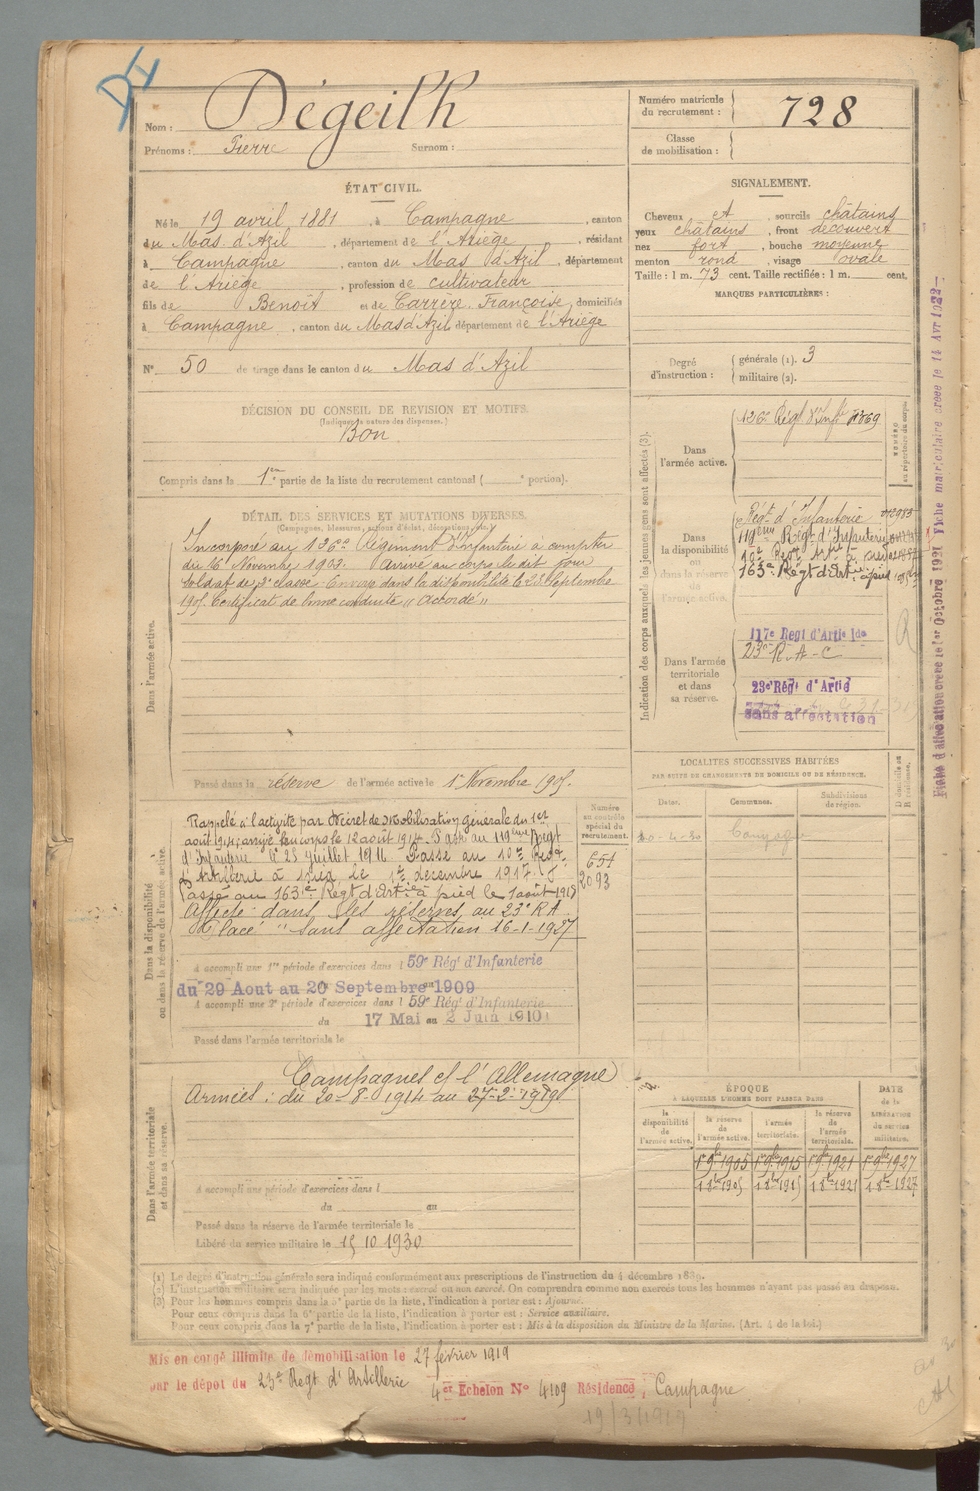 Nom : Dégeilh
Prénoms : Pierre Surnom :
Numéro matricule
du recrutement : 728
Classe
de mobilisation :
ÉTAT CIVIL.
Né le 19 avril 1881, à Campagne, canton
du Mas d'Azil, département de l'Ariège, résidant
à Campagne, canton du Mas d'Azil, département
de l'Ariège, profession de cultivateur
fils de Benoît et de Carrère Françoise, domiciliés
à Campagne, canton du Mas d'Azil département de l'Ariège
N° 50 de tirage dans le canton du Mas d'Azil
SIGNALEMENT.
Cheveux et, sourcils châtains
yeux châtains, front découvert
nez fort, bouche moyenne
menton rond, visage ovale
Taille : 1 m. 73 cent. Taille rectifiée : 1 m. cent.
MARQUES PARTICULIÈRES :
Degré
d'instruction :
générale (1). 3
militaire (2).
DÉCISION DU CONSEIL DE REVISION ET MOTIFS.
(Indiquer la nature des dispenses.)
Bon
Compris dans la 1re partie de la liste du recrutement cantonal ( e portion).
DÉTAIL DES SERVICES ET MUTATIONS DIVERSES.
(Campagnes, blessures, actions d'éclat, décorations, etc.)
Dans l'armée active.
Incorporé au 126e Régiment d'Infanterie à compter
du 16 Novembre 1903. Arrivé au corps le dit jour
soldat de 2e classe. Envoyé dans la disponibilité le 23 Septembre
1905. Certificat de bonne conduite "Accordé"
Passé dans la réserve de l'armée active le 1er Novembre 1905.
Indication des corps auxquels les jeunes gens sont affectés (3).
Dans
l'armée active.
126e Régt d'Infie
NUMÉRO
au répertoire du corps.
Dans
la disponibilité
ou
dans la réserve
de
l'armée active.
Régt d'Infanterie
119ème Régt d'Infanterie
10e Regt Artie à pied
163e Régt d'Artie à pied
Dans l'armée
territoriale
et dans
sa réserve.
117e Regt d'Artie lde
23e R.A.C
23e Régt d'Artie
sans affectation
Fiche d'affectation créée le 1er Octobre 1921 Fiche matriculaire créée le 14 Avr 1922
Dans la disponibilité
ou dans la réserve de l'armée active
Rappelé à l'activité par Décret de Mobilisation Générale du 1er
août 1914, arrivé au corps le 12 août 1914. Passé au 119ème Régt
d'Infanterie le 25 juillet 1916. Passé au 10e Regt
d'Artillerie à pied le 1er décembre 1917.
Passé au 163e Régt d'Artie à pied le 1 août 1918
Affecté dans les réserves au 23e RA
Placé "sans affectation" 16-1-1937
Numéro
au contrôle
spécial du
recrutement.
654
2093
A accompli une 1re période d'exercices dans l 59e Régt d'Infanterie
du 29 Aout au 20 Septembre 1909
A accompli une 2e période d'exercices dans l 59e Régt d'Infanterie
du 17 Mai au 2 Juin 1910
Passé dans l'armée territoriale le
LOCALITÉS SUCCESSIVES HABITÉES
PAR SUITE DE CHANGEMENTS DE DOMICILE OU DE RÉSIDENCE.
Dates. Communes. Subdivisions
de région.
D domicile ou
R résidence.
20-4-30 Campagne
Dans l'armée territoriale
et dans sa réserve.
Campagne ct l'Allemagne
Armées : du 20-8-1914 au 27-2-1919
A accompli une période d'exercices dans l
du au
Passé dans la réserve de l'armée territoriale le
Libéré du service militaire le 15 10 1930
ÉPOQUE
À LAQUELLE L'HOMME DOIT PASSER DANS
la
disponibilité
de
l'armée active.
la réserve
de
l'armée active.
l'armée
territoriale.
la réserve
de
l'armée
territoriale.
DATE
de la
LIBÉRATION
du service
militaire.
1er 9bre 1905 1er 9bre 1915 1er 9bre 1921 1er 9bre 1927
1 8bre 1905 1 8bre 1915 1 8bre 1921 1 8bre 1927
(1) Le degré d'instruction générale sera indiqué conformément aux prescriptions de l'instruction du 4 décembre 1889.
(2) L'instruction militaire sera indiquée par les mots : exercé ou non exercé. On comprendra comme non exercés tous les hommes n'ayant pas passé au drapeau.
(3) Pour les hommes compris dans la 5e partie de la liste, l'indication à porter est : Ajourné.
Pour ceux compris dans la 6e partie de la liste, l'indication à porter est : Service auxiliaire.
Pour ceux compris dans la 7e partie de la liste, l'indication à porter est : Mis à la disposition du Ministre de la Marine. (Art. 4 de la loi.)
Mis en congé illimité de démobilisation le 27 février 1919
par le dépôt du 23e Regt d'Artillerie 4er Echelon N° 4109 Résidence, Campagne
19/3/1919